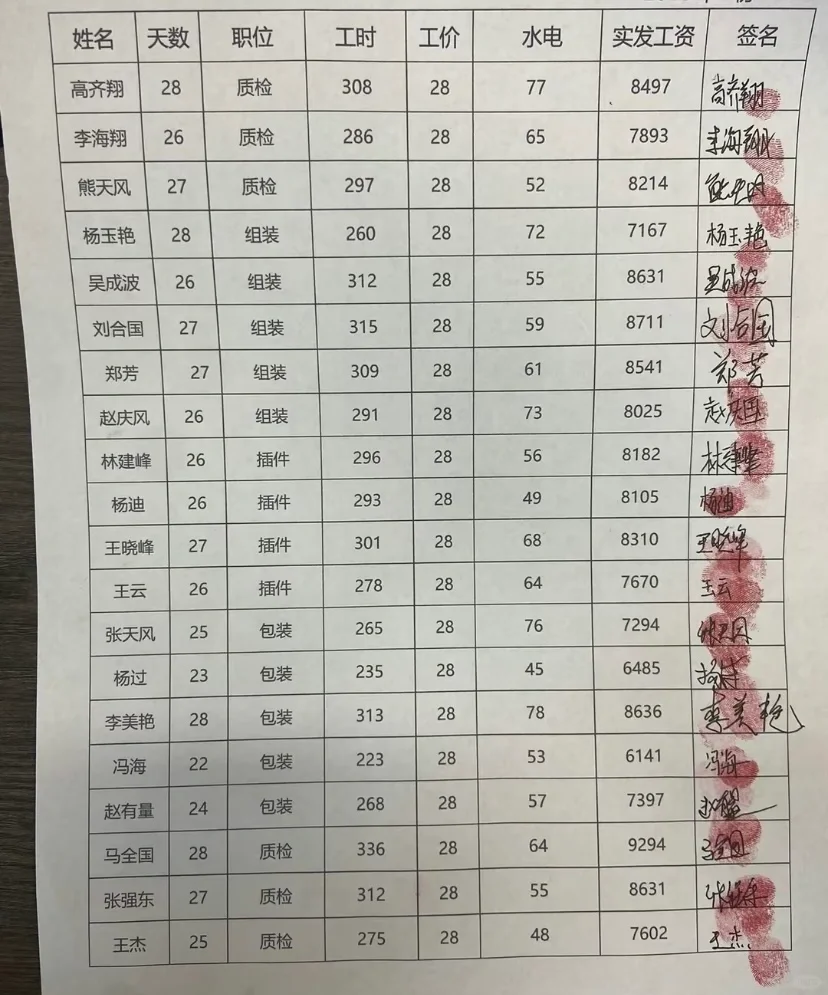 姓名 天数 职位 工时 工价 水电 实发工资 签名
高齐翔 28 质检 308 28 77 8497 高齐翔
李海翔 26 质检 286 28 65 7893 李海翔
熊天风 27 质检 297 28 52 8214
杨玉艳 28 组装 260 28 72 7167 杨玉艳
吴成波 26 组装 312 28 55 8631 吴成波
刘合国 27 组装 315 28 59 8711 刘合国
郑芳 27 组装 309 28 61 8541 郑芳
赵庆风 26 组装 291 28 73 8025
林建峰 26 插件 296 28 56 8182 林建峰
杨迪 26 插件 293 28 49 8105 杨迪
王晓峰 27 插件 301 28 68 8310 王晓峰
王云 26 插件 278 28 64 7670 王云
张天风 25 包装 265 28 76 7294
杨过 23 包装 235 28 45 6485
李美艳 28 包装 313 28 78 8636 李美艳
冯海 22 包装 223 28 53 6141 冯海
赵有量 24 包装 268 28 57 7397
马全国 28 质检 336 28 64 9294 马全国
张强东 27 质检 312 28 55 8631
王杰 25 质检 275 28 48 7602 王杰